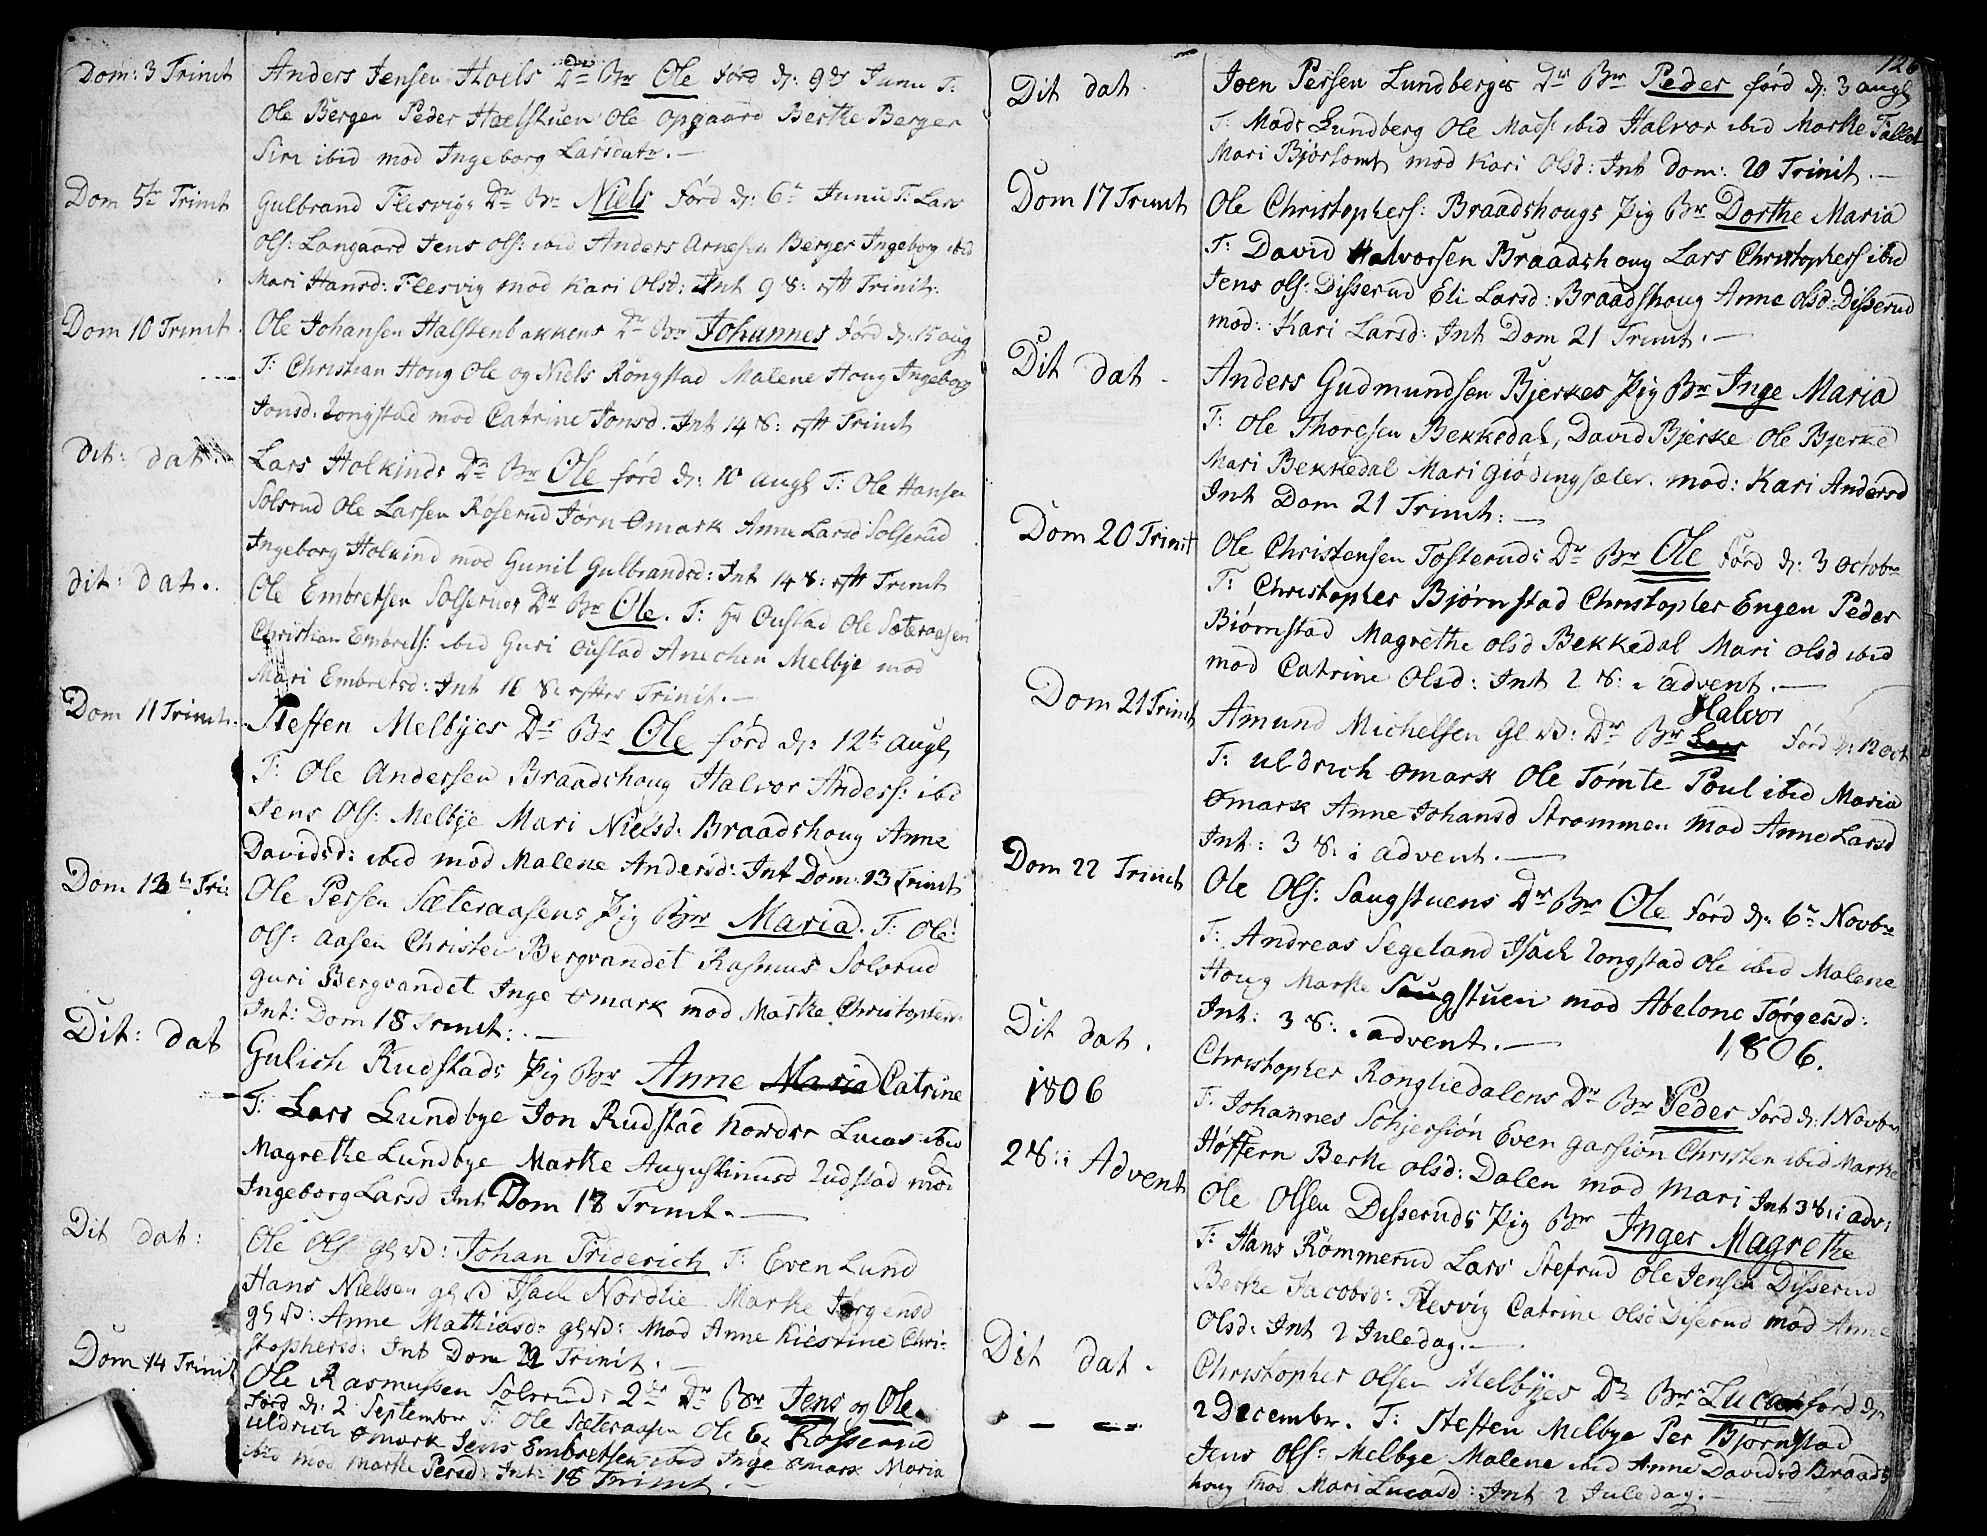 Dom: 3 Trinit
Anders Jensen Hoels Dr Br Ole förd d: 9de Junii T:
Ole Bergen Peder Hoelstuen Ole Opgaard Berthe Berger
Siri ibid mod Ingeborg Larsdatr.
Dom 5te Trinit
Gulbrand Flesvigs Dr Br Niels förd d: 6te Junii T: Lars
Ols: Langaard Jens Ols: ibid Anders Arnesen Berger Ingeborg ibid
Mari Hansd: Flesvig mod Kari Olsd: Int 9 S: eftr Trinit:
Dom 10 Trinit
Ole Johansen Halstenbakkens Dr Br Johannes förd d: 15 aug
T: Christian Houg Ole og Niels Rongstad Malene Houg Ingeborg
Jonsd. Rongstad mod Catrine Jonsd. Int 14 S: eftr Trinit
dit: dat.
Lars Holkinds Dr Br Ole förd d: 10 Augs T: Ole Hansen
Solsrud Ole Larsen Röserud Jörn Omark Anne Larsd Solserud
Ingeborg Holkind mod Gunil Gulbrandsd: Int 14 S: eftr Trinit
dit: dat.
Ole Embretsen Solseruds Dr Br Ole. T: Hr Oustad Ole Sæteraasen
Christian Embrets: ibid Guri Oustad Anechen Melbye mod
Mari Embretsd: Int 16 S: efter Trinit.
Dom 11 Trinit.
Steffen Melbyes Dr Br Ole förd d: 12te Augs
T: Ole Andersen Braadshoug Halvor Anders: ibid
Jens Ols: Melbye Mari Nielsd: Braadshoug Anne
Davidsd: ibid mod Malene Andersd: Int Dom: 13 Trinit
Dom 13te Tri:
Ole Persen Sæteraasens Pig Br Maria. T: Ole
Ols: Aasen Christen Bergvandet Rasmus Solsrud
Guri Bergvandet Inge Omark mod Marthe Christophers:
Int: Dom 18 Trinit:
Dit: dat
Gulich Rudstads Pig Br Anne Maria Catrine
T: Lars Lundbye Jon Rudstad Nordre Lucas ibid
Magrethe Lundbye Marthe Augustinusd Rudstad mod
Ingeborg Larsd Int Dom 18 Trinit.
Dit dat:
Ole Ols gl: V: Johan Friderich T: Even Lund
Hans Nielsen gl: V Isach Nordlie Marthe Jörgensd
gl: V: Anne Mathiasd: gl: V: Mod Anne Kirstine Chri-
stophersd: Int Dom 19 Trinit.
Dom 14 Trinit
Ole Rasmussen Solsruds 2de Dr Br Jens og Ole
förd d: 2 Septembr T: Ole Sæteraasen Ole E: Rösserud
Uldrich Omark Jens Embretsen ibid Inge Omark Maria
ibid mod Marthe Persd: Int: 18 Trinit.
126
Dit dat
Joen Persen Lundberges Dr Br Peder förd d: 3 augs
T: Mads Lundberg Ole Mads: ibid Halvor ibid Marthe Tallet
Mari Björtomt mod Kari Olsd: Int Dom: 20 Trinit.
Dom 17 Trinit
Ole Christophers: Braadshougs Pig Br Dorthe Maria
T: David Halvorsen Braadshoug Lars Christophers ibid
Jens Ols: Disserud Eli Larsd: Braadshoug Anne Olsd: Disserud
mod: Kari Larsd: Int Dom 21 Trinit.
Dit dat
Anders Gudmundsen Bjerkes Pig Br Inge Maria
T: Ole Thoresen Bekkedal, David Bjerke Ole Bjerke
Mari Bekkedal Mari Giödingsæter. mod: Kari Andersd
Int Dom 21 Trinit:
Dom 20 Trinit
Ole Christensen Tosteruds Dr Br Ole förd d: 3 Octobr
T: Christopher Björnstad Christopher Engen Peder
Biörnstad Magrethe Olsd Bekkedal Mari Olsd ibid
mod Catrine Olsd: Int 2 S: i advent.
Dom 21 Trinit
Amund Michelsen Gl V: Dr Br Lars Halvor förd d: 12 Oct
T: Uldrich Omark Ole Tömte Poul ibid Maria
Omark Anne Johansd Strommen Mod Anne Larsd
Int: 3 S: i advent.
Dom 22 Trinit
Ole Ols: Saugstuens Dr Br Ole förd d: 6te Novbr
T: Andreas Segeland Isach Rongstad Ole ibid Malene
Houg Marthe Saugstuen mod Abelone Törgersd:
Int: 3 S: i advent.
1806.
Dit dat.
1806
Christopher Rongliedalens Dr Br Peder förd d: 1 Novbr
T: Johannes Schjersiön Even Garsiön Christen ibid Marthe
Höffern Berthe Olsd: Dalen mod Mari Int 3 S: i adv:
2 S: i Advent
Ole Olsen Disseruds Pig Br Inger Magrethe
T: Hans Römmerud Lars Stefrud Ole Jensen Disserud
Berthe Jacobsd: Flesvig Catrine Olsd Diserud mod Anne
Olsd: Int 2 Juledag.
Dit dat.
Christopher Olsen Melbyes Dr Br Lucas förd d:
2 Decembr. T: Steffen Melbye Per Björnstad
Jens Ols: Melbye Malene ibid Anne Davidsd Braads
houg mod Mari Lucasd: Int 2 Juledag.